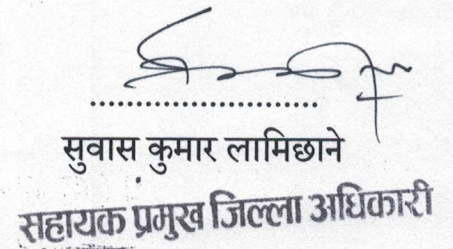 ..............................
सुवास कुमार लामिछाने
सहायक प्रमुख जिल्ला अधिकारी